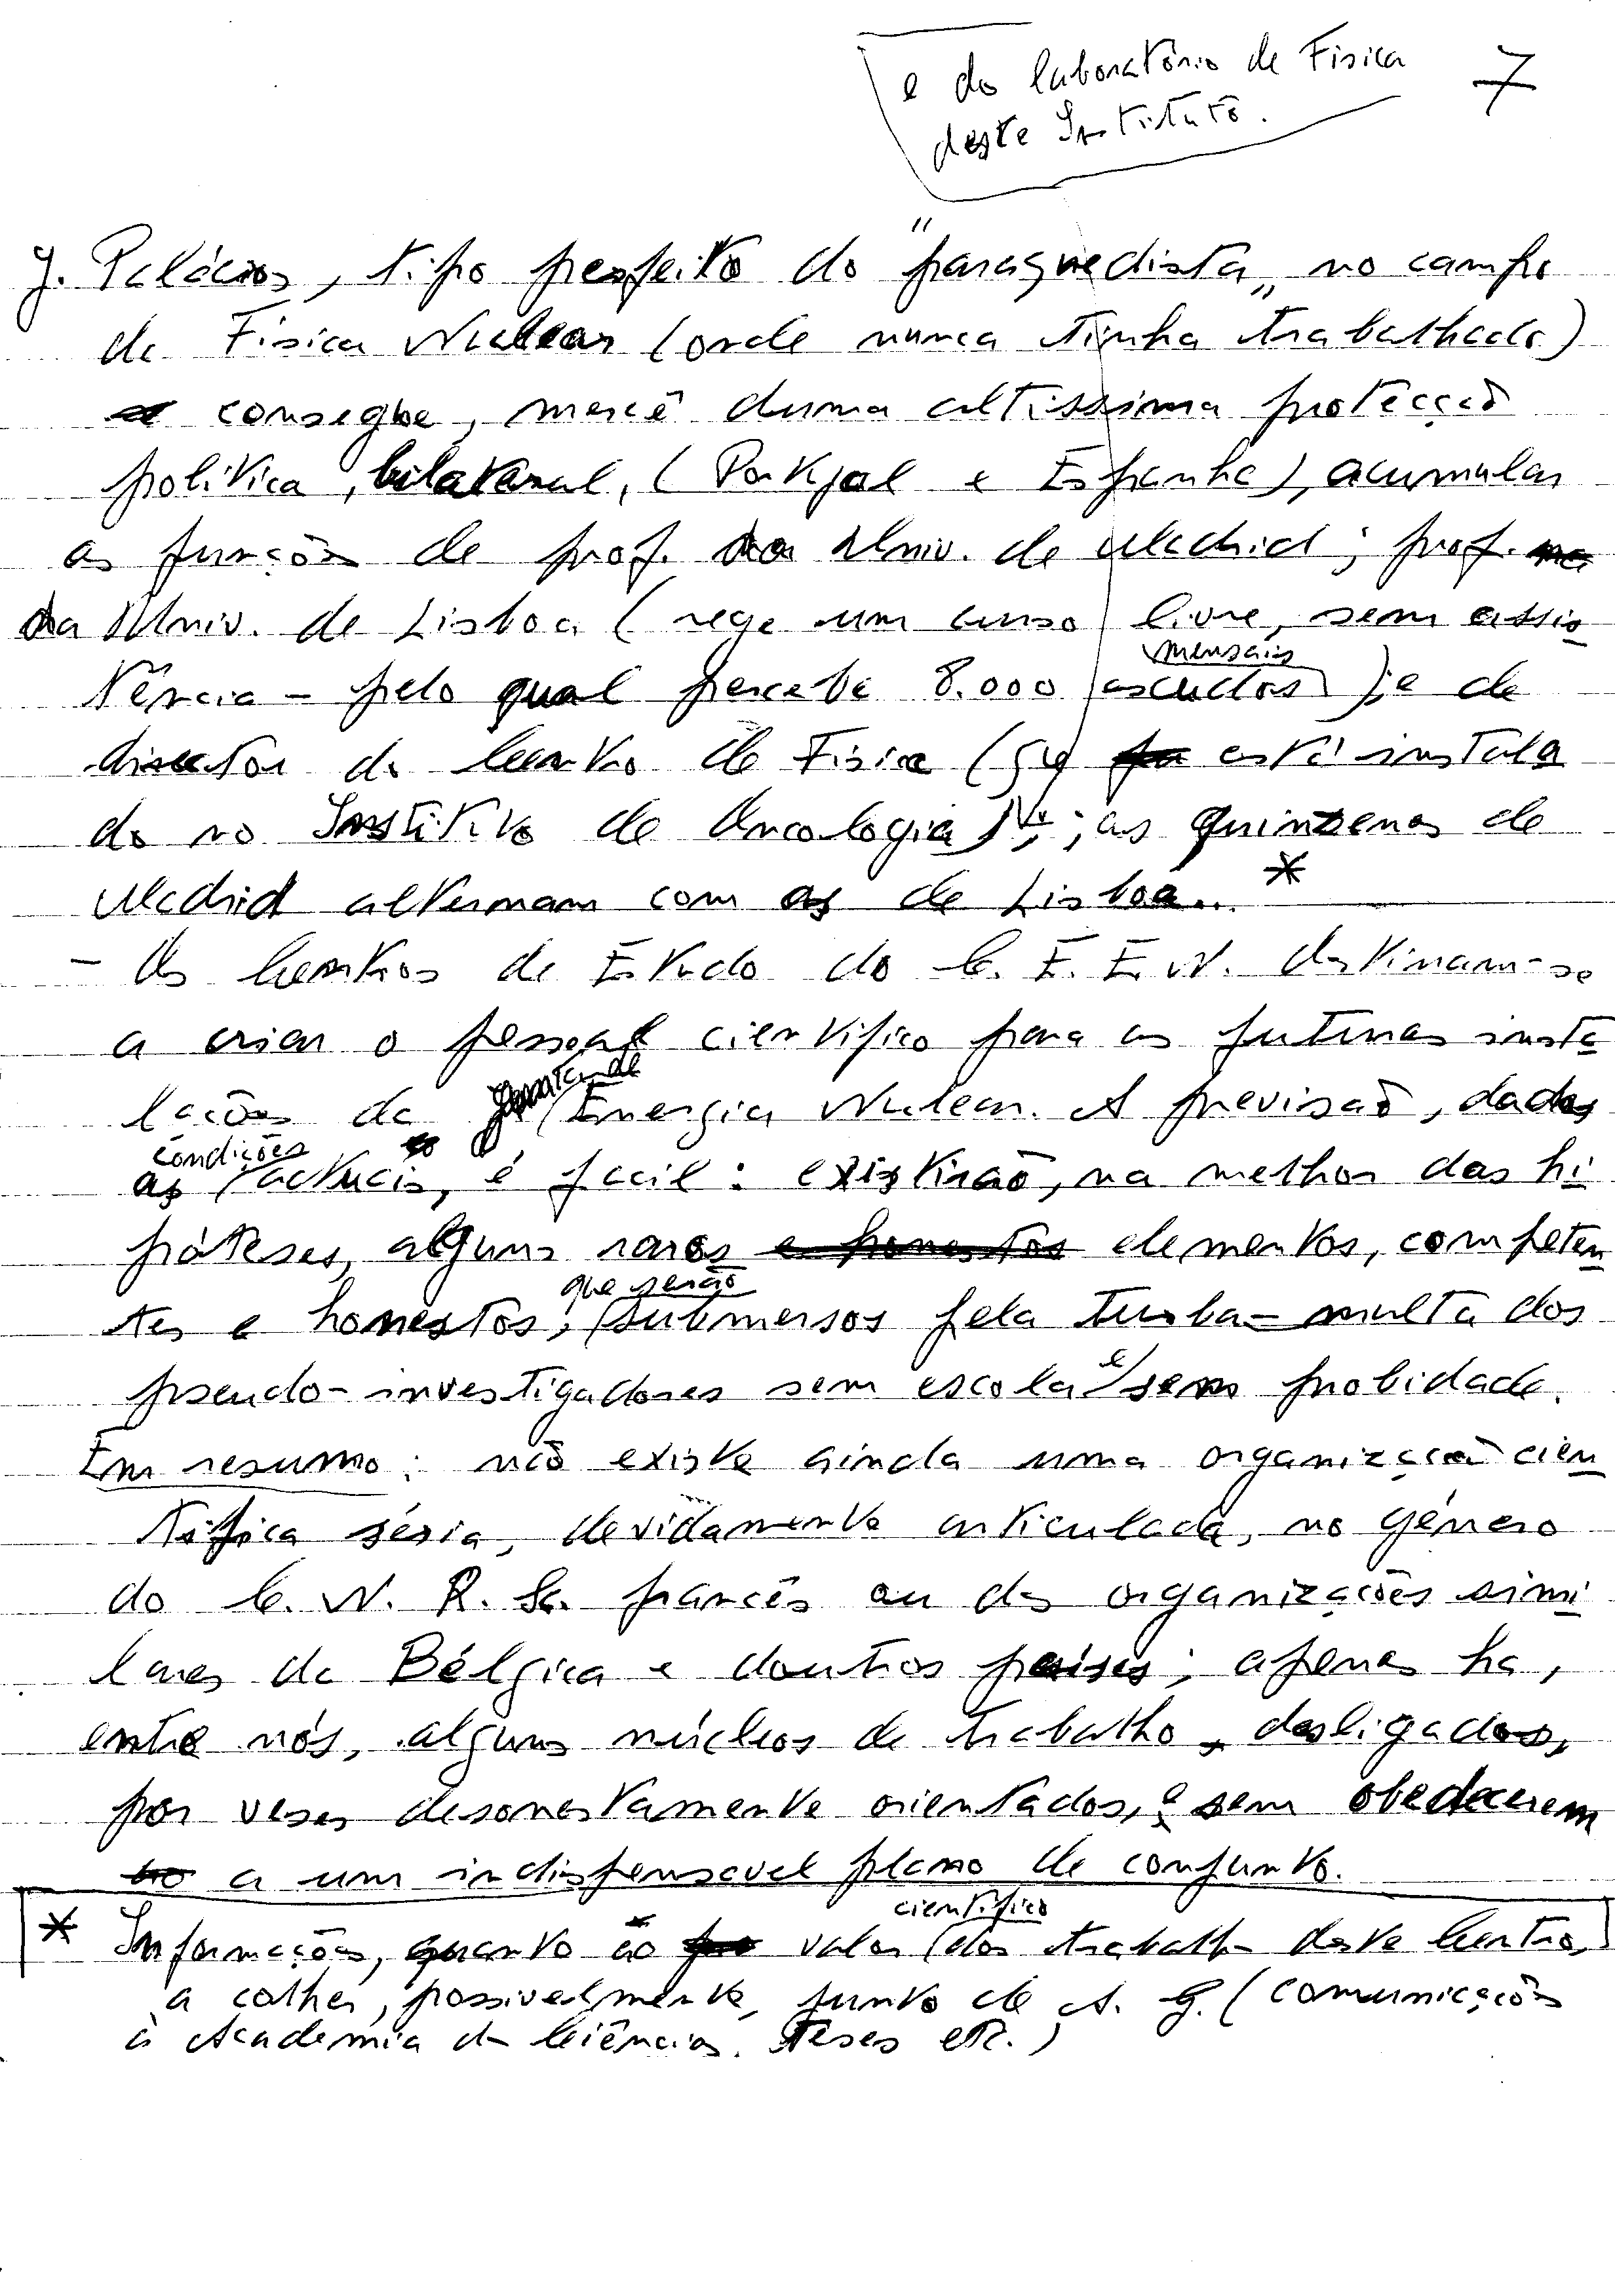 e do laboratório de Física
deste Instituto.
7
J. Palácios, tipo perfeito do "paraquedista„ no campo
da Física Nuclear (onde nunca tinha trabalhado)
consegue, mercê duma altíssima protecção
política, bilateral, (Portugal e Espanha), acumular
as funções de prof. da Univ. de Madrid; prof.
da Univ. de Lisboa (rege um curso livre, sem assis
mensais
tência - pelo qual percebe 8.000 escudos); e de
director do Centro de Física (já está instala
do no Instituto de Oncologia); as quinzenas de
Madrid alternam com as de Lisboa... *
- Os Centros de Estudo do C. E. E. N. destinam-se
a criar o pessoal científico para as futuras insta
lações da Energia Nuclear. A previsão, dadas
condições
as actuais, é fácil: existirão, na melhor das hi
póteses, alguns raros e honestos elementos, competen
que serão
tes e honestos, submersos pela turba-multa dos
pseudo-investigadores sem escola e sem probidade.
Em resumo: não existe ainda uma organização cien
tífica séria, devidamente articulada, no género
do C. N. R. Sc. francês ou das organizações simi
lares da Bélgica e doutros países; apenas há,
entre nós, alguns núcleos de trabalho, desligados,
por vezes desonestamente orientados, e sem obedecerem
a um indispensável plano de conjunto.
científico
* Informações, quanto ao valor dos trabalhos deste Centro,
a colher, possivelmente, junto de A. G. (comunicações
à Academia das Ciências, teses etc.)